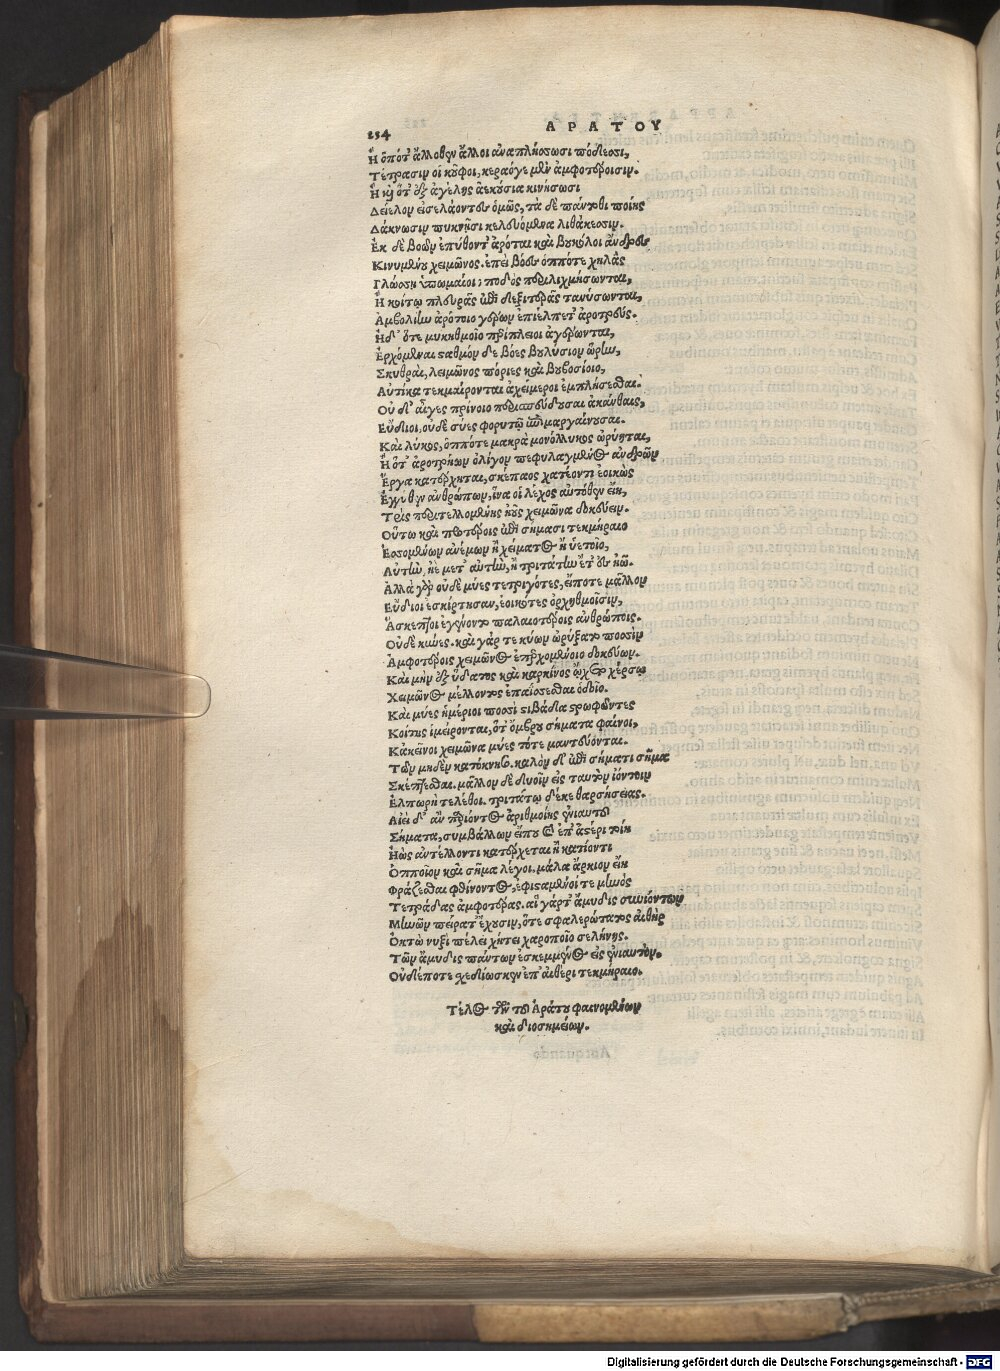 254
ΑΡΑΤΟΥ
Ἢ ὁπότ' ἄλλοθεν ἄλλοι ἀναπλήσωσι πόδεσσι,
Τέτρασιν οἱ κοῦφοι, κεραόγε μὲν ἀμφοτέροισιν.
Ἢ καὶ ὅτ' ἐξ ἀγέλης ἀεκούσια κινήσωσι
Δείελον εἰσελάοντες ὁμῶς, τὰ δὲ πάντοθι ποίης
Δάκνωσιν πυκινῇσι κελευόμενα λιθάκεσσιν.
Ἐκ δὲ βοῶν ἐπύθοντ' ἀρόται καὶ βουκόλοι ἄνδρες
Κινυμένου χειμῶνος. ἐπεὶ βόες ὁππότε χηλὰς
Γλώσσῃ ὑπωμαίοιο ποδὸς περιλιχμήσωνται,
Ἢ κοίτῳ πλευρὰς ἐπὶ δεξιτερὰς τανύσωνται,
Ἀμβολίην ἀρότοιο γέρων ἐπιέλπετ' ἀροτρεύς.
Ἠδ' ὅτε μυκηθμοῖο περίπλειοι ἀγέρωνται,
Ἐρχόμεναι σταθμόν δε βόες βουλύσιον ὥρην,
Σκυθραὶ, λειμῶνος πόριες καὶ βουβοσίοιο,
Αὐτίκα τεκμαίρονται ἀχείμεροι ἐμπλήσεσθαι.
Οὐ δ' αἶγες πρίνοιο περισπεύδουσαι ἀκάνθαις,
Εὔδιοι, οὐδὲ σύες φορυτῷ ἐπιμαργαίνουσαι.
Καὶ λύκος, ὁππότε μακρὰ μονόλυκος ὠρύηται,
Ἢ ὅτ' ἀροτρήων ὀλίγον πεφυλαγμένος ἀνδρῶν
Ἔργα κατέρχηται, σκέπαος χατέοντι ἐοικὼς
Ἐγγύθεν ἀνθρώπων, ἵνα οἱ λέχος αὐτόθεν εἴη,
Τρὶς περιτελλομένης ἠοῦς χειμῶνα δοκεύειν.
Οὕτω καὶ προτέροις ἐπὶ σήμασι τεκμήραιο
Ἐσσομένων ἀνέμων ἢ χείματος ἢ ὑετοῖο,
Αὐτὴν, ἠὲ μετ' αὐτὴν, ἢ τριτάτην ἔτ' ἐς ἠῶ.
Ἀλλὰ γὰρ οὐδὲ μύες τετριγότες, εἴποτε μᾶλλον
Εὔδιοι ἐσκίρτησαν, ἐοικότες ὀρχηθμοῖσιν,
Ἄσκεπτοι ἐγένοντο παλαιοτέροις ἀνθρώποις.
Οὐδὲ κύνες. καὶ γάρ τε κύων ὠρύξατο ποσσὶν
Ἀμφοτέροις χειμῶνος ἐπερχομένοιο δοκεύων.
Καὶ μὴν ἐξ ὕδατος καὶ καρκίνος ᾤχετο χέρσῳ
Χειμῶνος μέλλοντος ἐπαΐσσεσθαι ὁδοῖο.
Καὶ μύες ἡμέριοι ποσσὶ στιβάδα στρωφῶντες
Κοίτης ἱμείρονται, ὅτ' ὄμβρου σήματα φαίνοι,
Κἀκεῖνοι χειμῶνα μύες τότε μαντεύονται.
Τῶν μηδὲν κατόκνησο. καλὸν δ' ἐπὶ σήματι σῆμα
Σκέπτεσθαι. μᾶλλον δὲ δυοῖν εἰς ταυτὸν ἰόντοιν
Ἐλπωρὴ τελέθοι. τριτάτῳ δέ κε θαρσήσειας.
Αἰεὶ δ' ἂν περιόντος ἀριθμοίης ἐνιαυτοῦ
Σήματα, συμβάλλων εἴπου καὶ ἐπ' ἀστέρι τοίη
Ἠὼς ἀντέλλοντι κατέρχεται ἢ κατιόντι
Ὁπποῖον καὶ σῆμα λέγοι. μάλα ἄρκιον εἴη
Φράζεσθαι φθίνοντος, ἐφισαμένοιό τε μηνὸς
Τετράδας ἀμφοτέρας. αἳ γάρτ' ἄμυδις συνιόντων
Μηνῶν πείρατ' ἔχουσιν, ὅτε σφαλερώτατος αἰθὴρ
Ὀκτὼ νυξὶ πέλει χήτει χαροποῖο σελήνης.
Τῶν ἄμυδις πάντων ἐσκεμμένος εἰς ἐνιαυτὸν.
Οὐδέποτε σχεδίως κεν ἐπ' αἰθέρι τεκμήραιο.
Τέλος τῶν τοῦ Ἀράτου φαινομένων
καὶ διοσημείων.
Digitalisierung gefördert durch die Deutsche Forschungsgemeinschaft - DFG